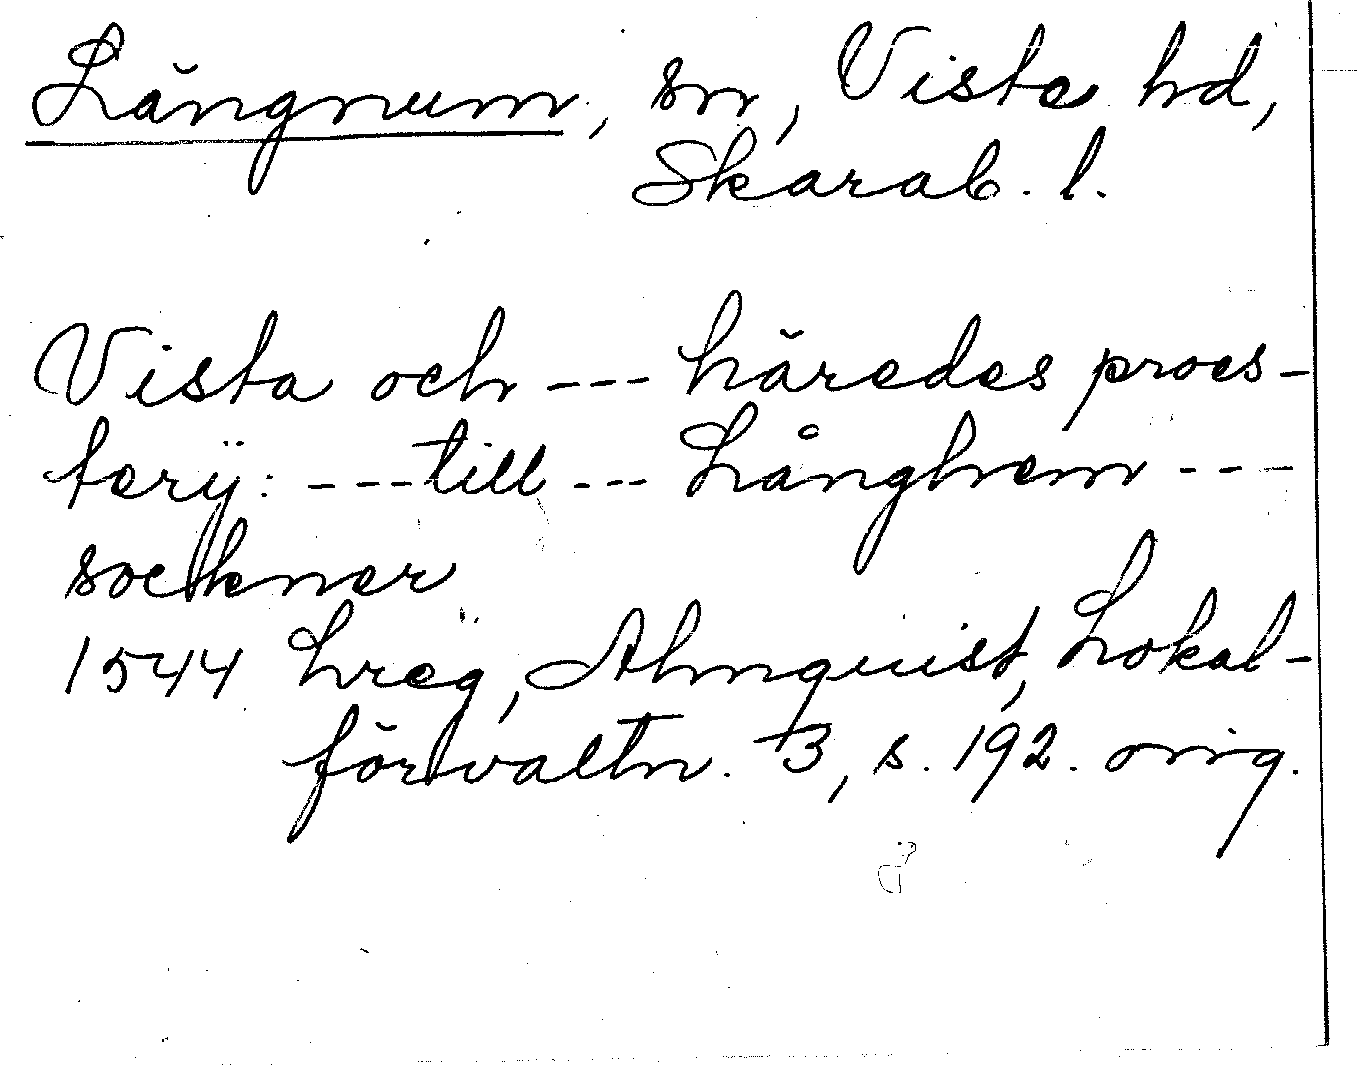 Långnum, sn, Viste hd,
Skarab. l.
Vista och --- häredes proes-
terÿ: --- till --- Långhem ---
sockner
1544 Lreg, Almquist, Lokal-
förvaltn. 3, s. 192. orig.